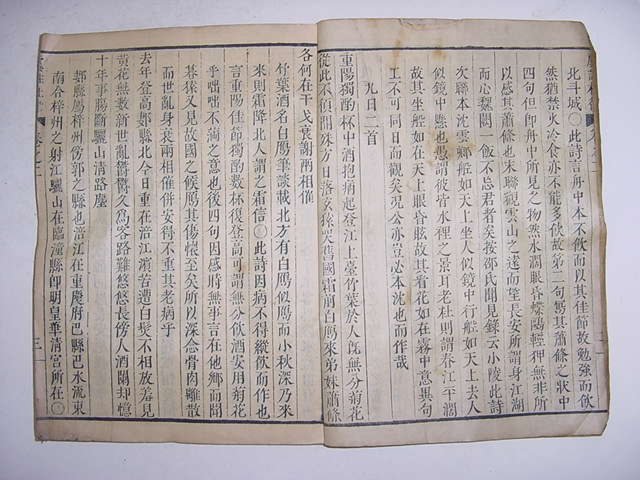 北斗城〇此詩言舟中本不飲而以其佳節故勉強而飲
然猶禁火冷食亦不能多飲故第一句寫其蕭條之狀中
四句但即舟中所見之物然水濶眼昏蝶鷗輕狎無非所
以感其蕭條也末聯觀雲山之遠而望長安所謂身江湖
而心魏闕一飯不忘君者矣按邵氏聞見錄云小陵此詩
次聯本沈雲卿船如天上坐人似鏡中行船如天上去人
似鏡中懸也愚謂彼皆水裡之景耳老杜則謂春江平濶
故其坐船如在天上眼昏眩故其看花如在霧中意異句
故不可同日而觀矣況公亦豈必本沈也而作哉
九日二首
重陽獨酌杯中酒抱病起登江上臺竹葉於人旣無分菊花
從此不須開殊方日落玄猿哭舊國霜前白鴈來弟妹蕭條
各何在干戈衰謝兩相催
竹葉酒名白鴈筆談載北方有白鴈似鴈而小秋深乃來
來則霜降北人謂之霜信〇此詩因病不得縱飲而作也
言重陽佳節獨酌數杯復登高可謂無分飲酒安用菊花
乎咄咄不满之意也後四句因感時無事言在他鄉而聞
暮猿又見故國之候鴈其傷懷至矣所以深念骨肉離散
而世亂身衰兩相催併安得不重其老病乎
去年登高郪縣北今日重在涪江濱苦遭白髮不相放羞見
黃花無數新世亂鬱鬱久爲客路難悠悠長傍人酒闌却憶
十年事腸斷驪山清路塵
郪縣鴈梓州傍郭之縣也涪江在重慶府巴縣巴水流東
南合梓州之射江驪山在臨潼縣卽明皇華清宮所在〇
卷之二